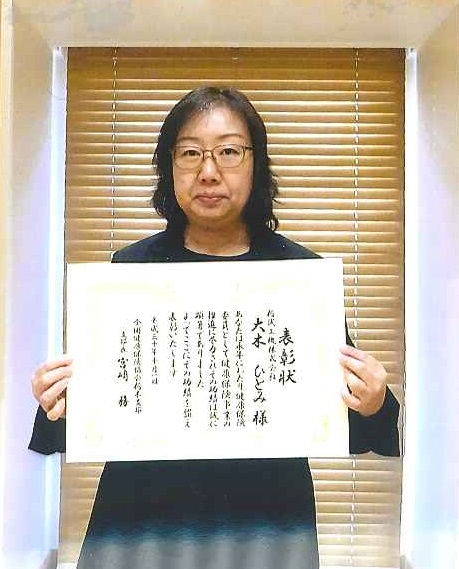 表彰状
株式会社
大木 ひとみ 様
あなたは永年にわたり健康保険
委員として健康保険事業の
推進に尽力されその功績は誠に
顕著でありました
よってここにその功績を讃え
表彰いたします
平成三十年十月一日
全国健康保険協会栃木支部
支部長 宮崎 務